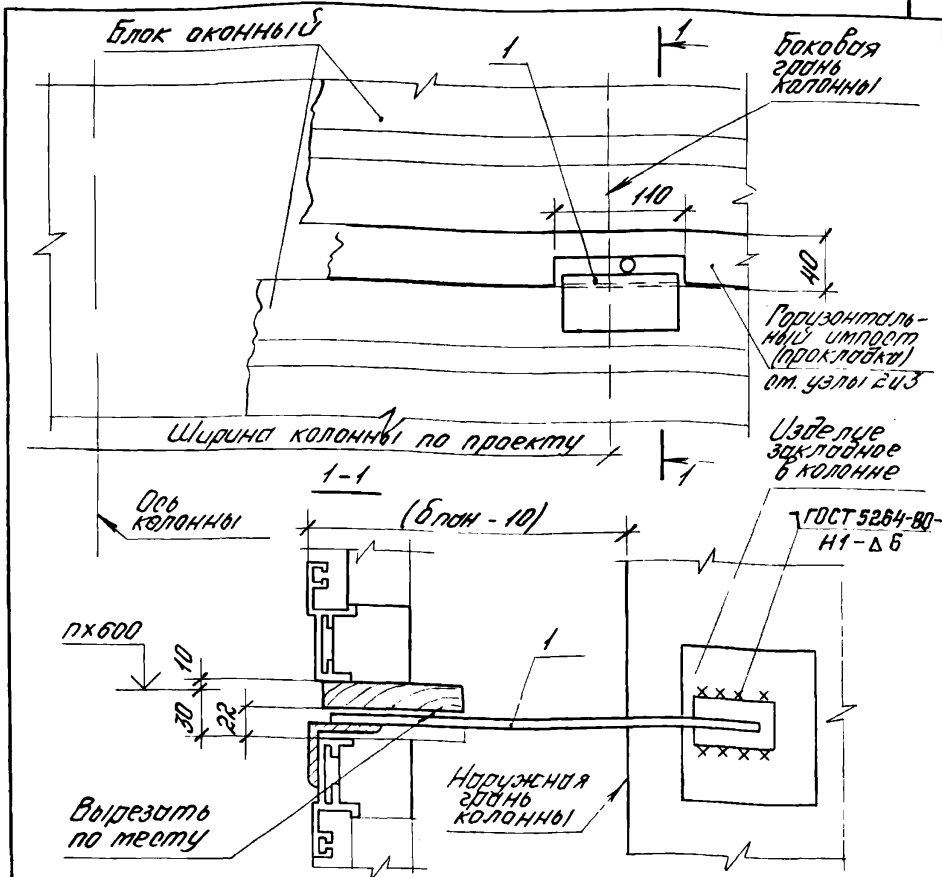 Блок оконный
1
1
Боковая
грань
колонны
110
40
Горизонталь-
ный импост
(прокладка)
см. узлы 2и3
Ширина колонны по проекту
1-1
1
Изделие
закладное
в колонне
Ось
колонны
(bпан - 10)
ГОСТ 5264-80-
Н1-Δ6
n×600
10
30
22
1
Вырезать
по месту
Наружная
грань
колонны